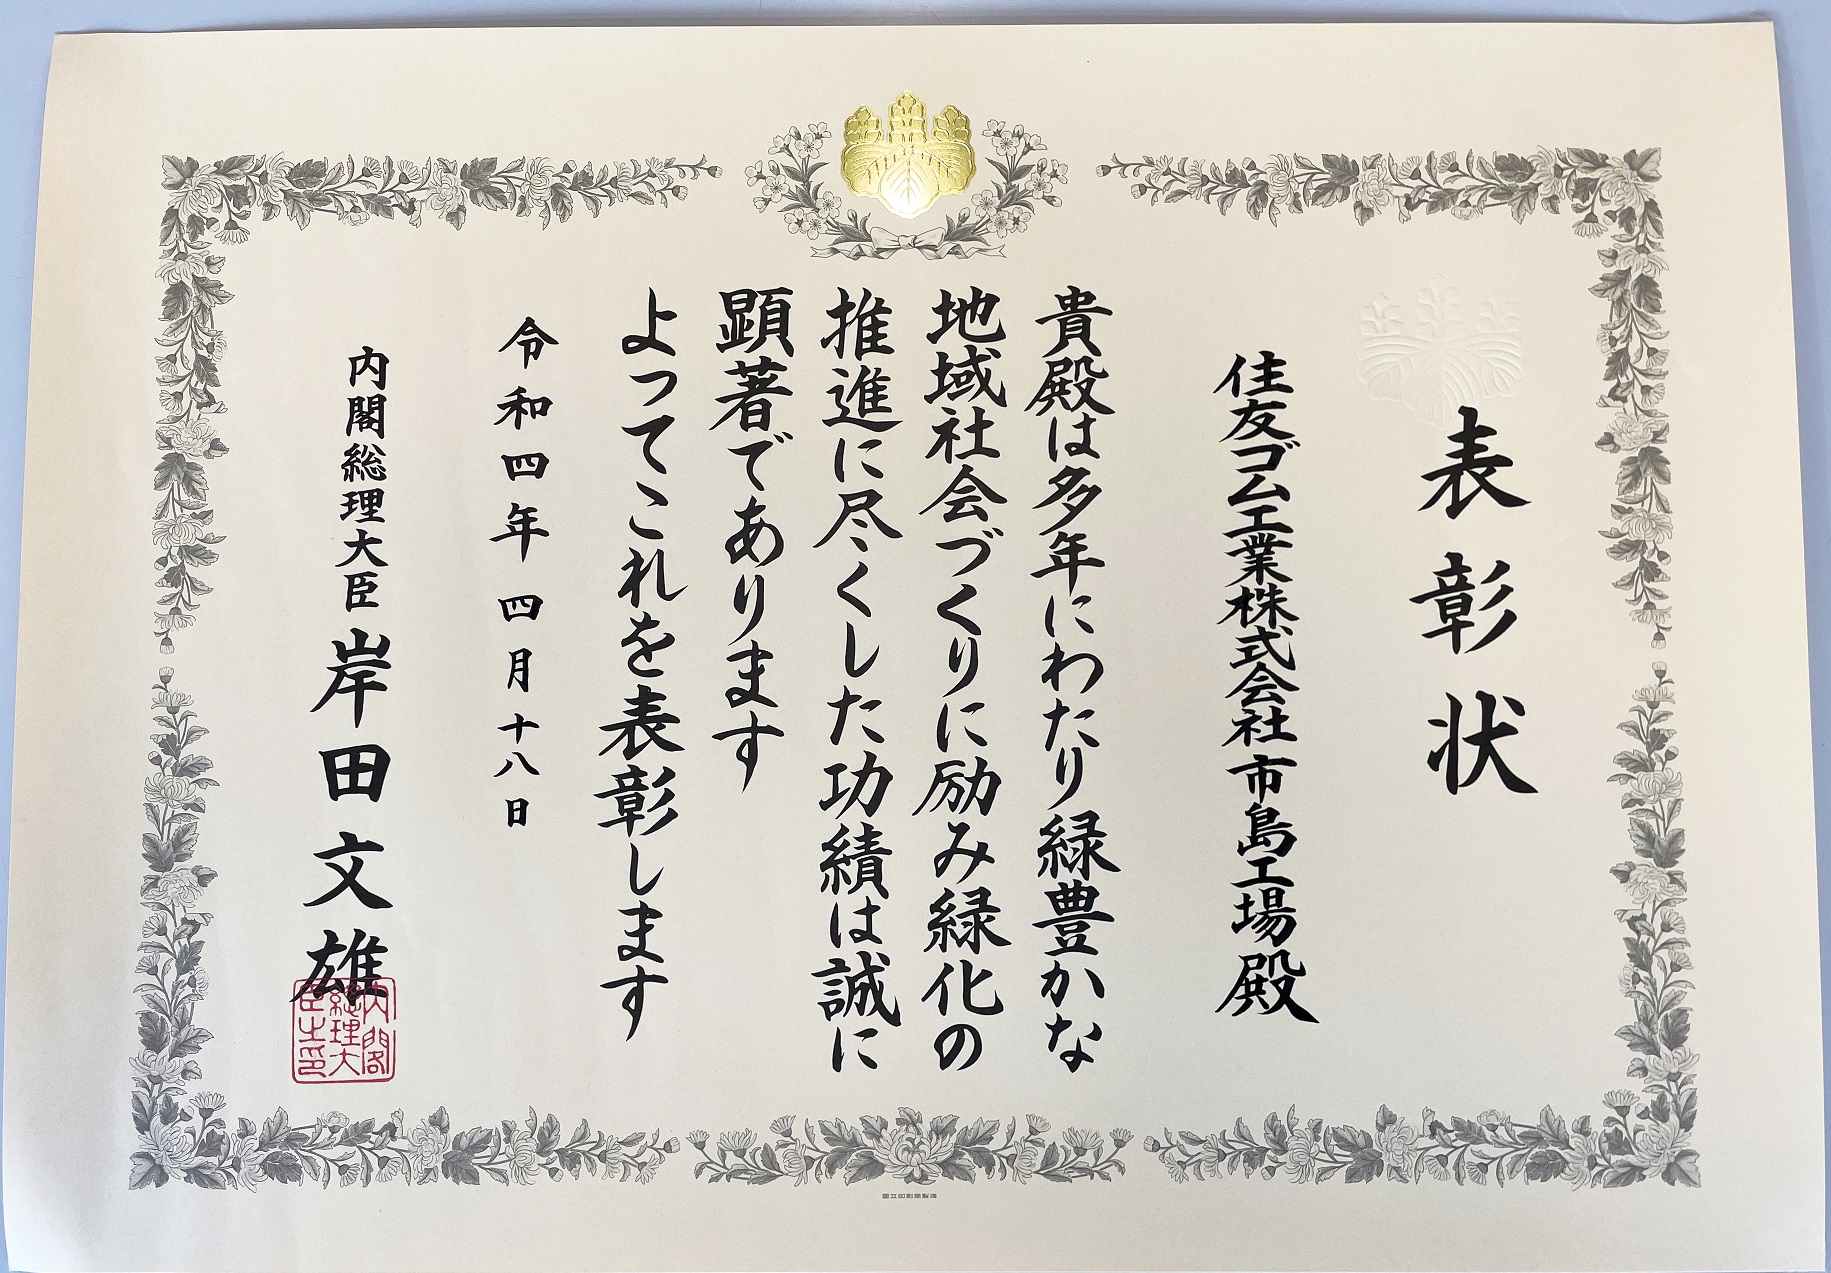 表彰状
住友ゴム工業株式会社市島工場殿
貴殿は多年にわたり緑豊かな
地域社会づくりに励み緑化の
推進に尽くした功績は誠に
顕著であります
よってこれを表彰します
令和四年四月十八日
内閣総理大臣岸田文雄
内閣総理大臣之印
国立印刷局製造